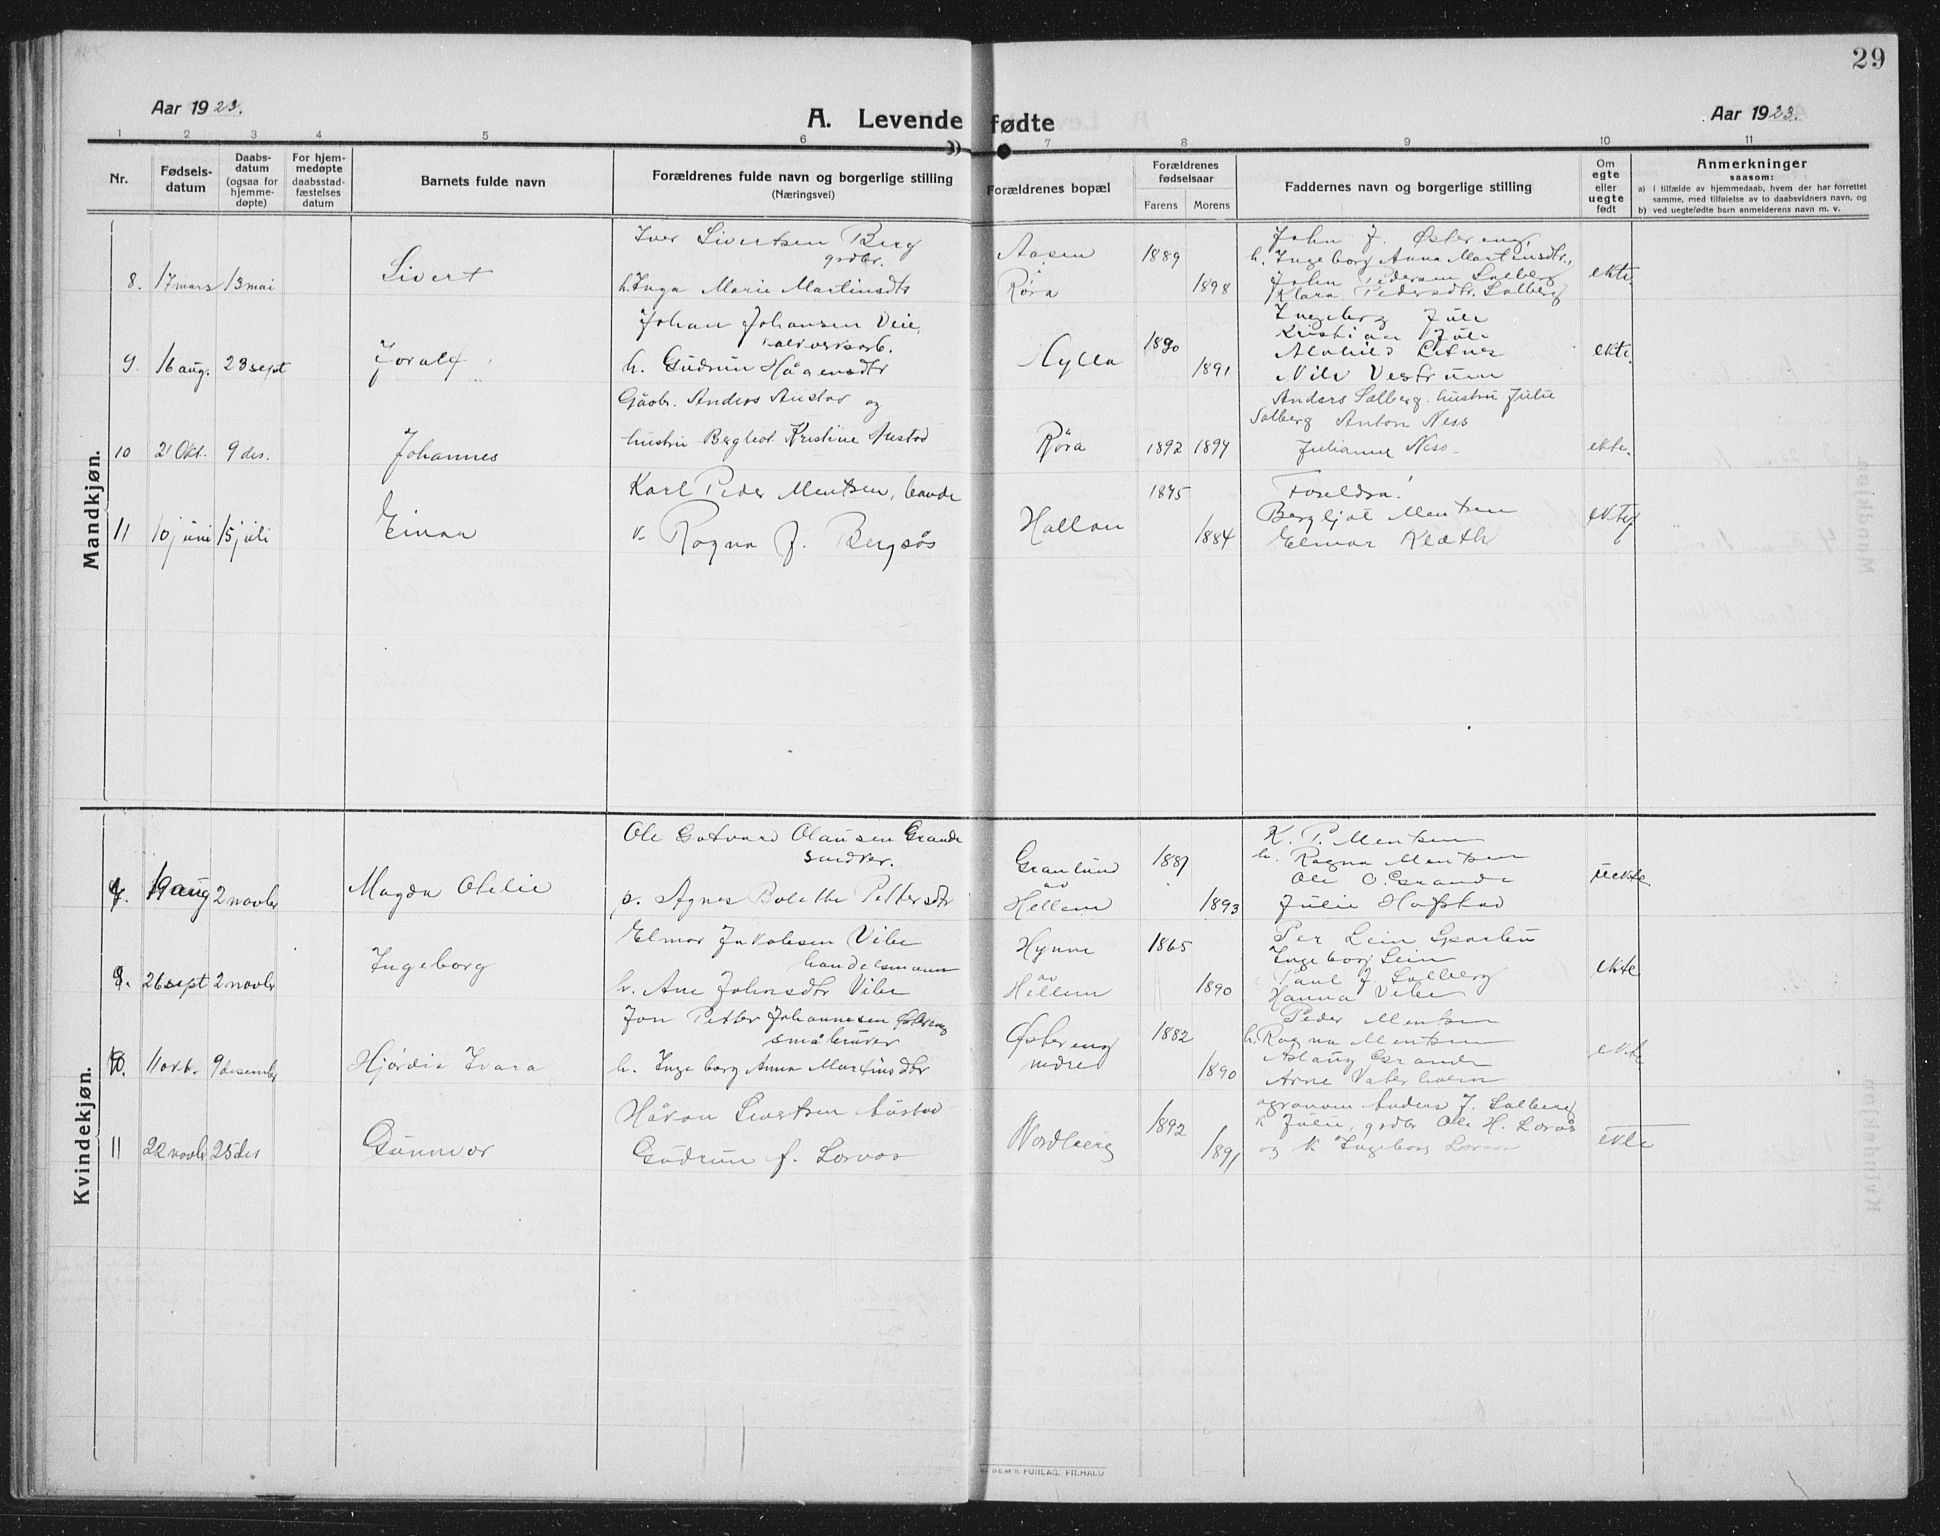 29
Aar 1923.
A. Levende fødte
Aar 1923.
1 2 3 4 5 6 7 8 9 10 11
Nr.
Fødsels-
datum
Daabs-
datum
(ogsaa for
hjemme-
døpte)
For hjem-
medøpte
daabsstad-
fæstelses
datum
Barnets fulde navn
Forældrenes fulde navn og borgerlige stilling
(Næringsvei)
Forældrenes bopæl
Forældrenes
fødselsaar
Farens Morens
Faddernes navn og borgerlige stilling
Om
egte
eller
uegte
født
Anmerkninger
saasom:
a) i tilfælde av hjemmedaab, hvem der har forrettet
samme, med tilføielse av to daabsvidners navn, og
b) ved uegtefødte barn anmelderens navn m. v.
Mandkjøn.
8. 17 mars 13 mai
Sivert
Iver Sivertsen Berg
grdbr.
h. Inga Marie Martinsdtr
Aasen
Røra
1889
1898
John J. Østereng,
h. Ingeborg Anna Martinsdtr.,
John Pedersen Salberg
Klara Pedersdtr. Salberg
ekte.
9. 16 aug. 23 sept
Joralf
Johan Johansen Veie,
kalkverksarb.
h. Gudrun Håkensdtr
Hylla
1890
1891
Ingeborg Jule
Kristian Jule
Alvhild Letnes
Nils Vestrum
ekte.
10 21 Okt. 9 des.
Johannes
Gårbr. Anders Austad og
hustru Bergliot Kristine Austad
Røra
1892 1894
Anders Salberg. hustru Julie
Salberg Anton Ness
Julianne Ness.
ekte.
11 10 juni 15 juli
Einar
Karl Peder Mentsen, bonde
v. Ragna J. Bergsås
Hallan
1875
1884
Foreldra!
Bergljot Mentsen
Elmar Klæth
Kvindekjøn.
8. 19 aug 2 novbr
Magda Otelie
Ole Gotvard Olausen Grande
snedker.
p. Agnes Bolethe Pettersdtr
Granlund
av
Hellem
1881
1893
K. P. Mentsen
h. Ragna Mentsen
Ole O. Grande
Julie Hofstad
uekte.
9. 26 sept 2 novbr
Ingeborg
Elmar Jakobsen Vibe
handelsmann
h. Ane Johnsdtr Vibe
Hynne
av
Hellem
1865
1890
Per Lein Sparbu
Ingeborg Lein
Paul J. Salberg
Hanna Vibe
ekte
10. 11 okt. 9 desember
Hjørdis Ivara
Jon Petter Johannesen Østereng
småbruker
h. Ingeborg Anna Martinsdtr
Østereng
nedre
1882
1890
Peder Mentsen
h. Ragna Mentsen
Aslaug Grande
Arne Vaterholm
ekte
11 22 novbr 25 des
Gunnvor
Håkon Sivertsen Austad
Gudrun f. Lorvås
Nordberg
1892
1891
agronom Anders J. Salberg
k Julie, grdbr Ole H. Lorvås
og k Ingeborg Lorvås
ekte
FORLAG, FR.HALD